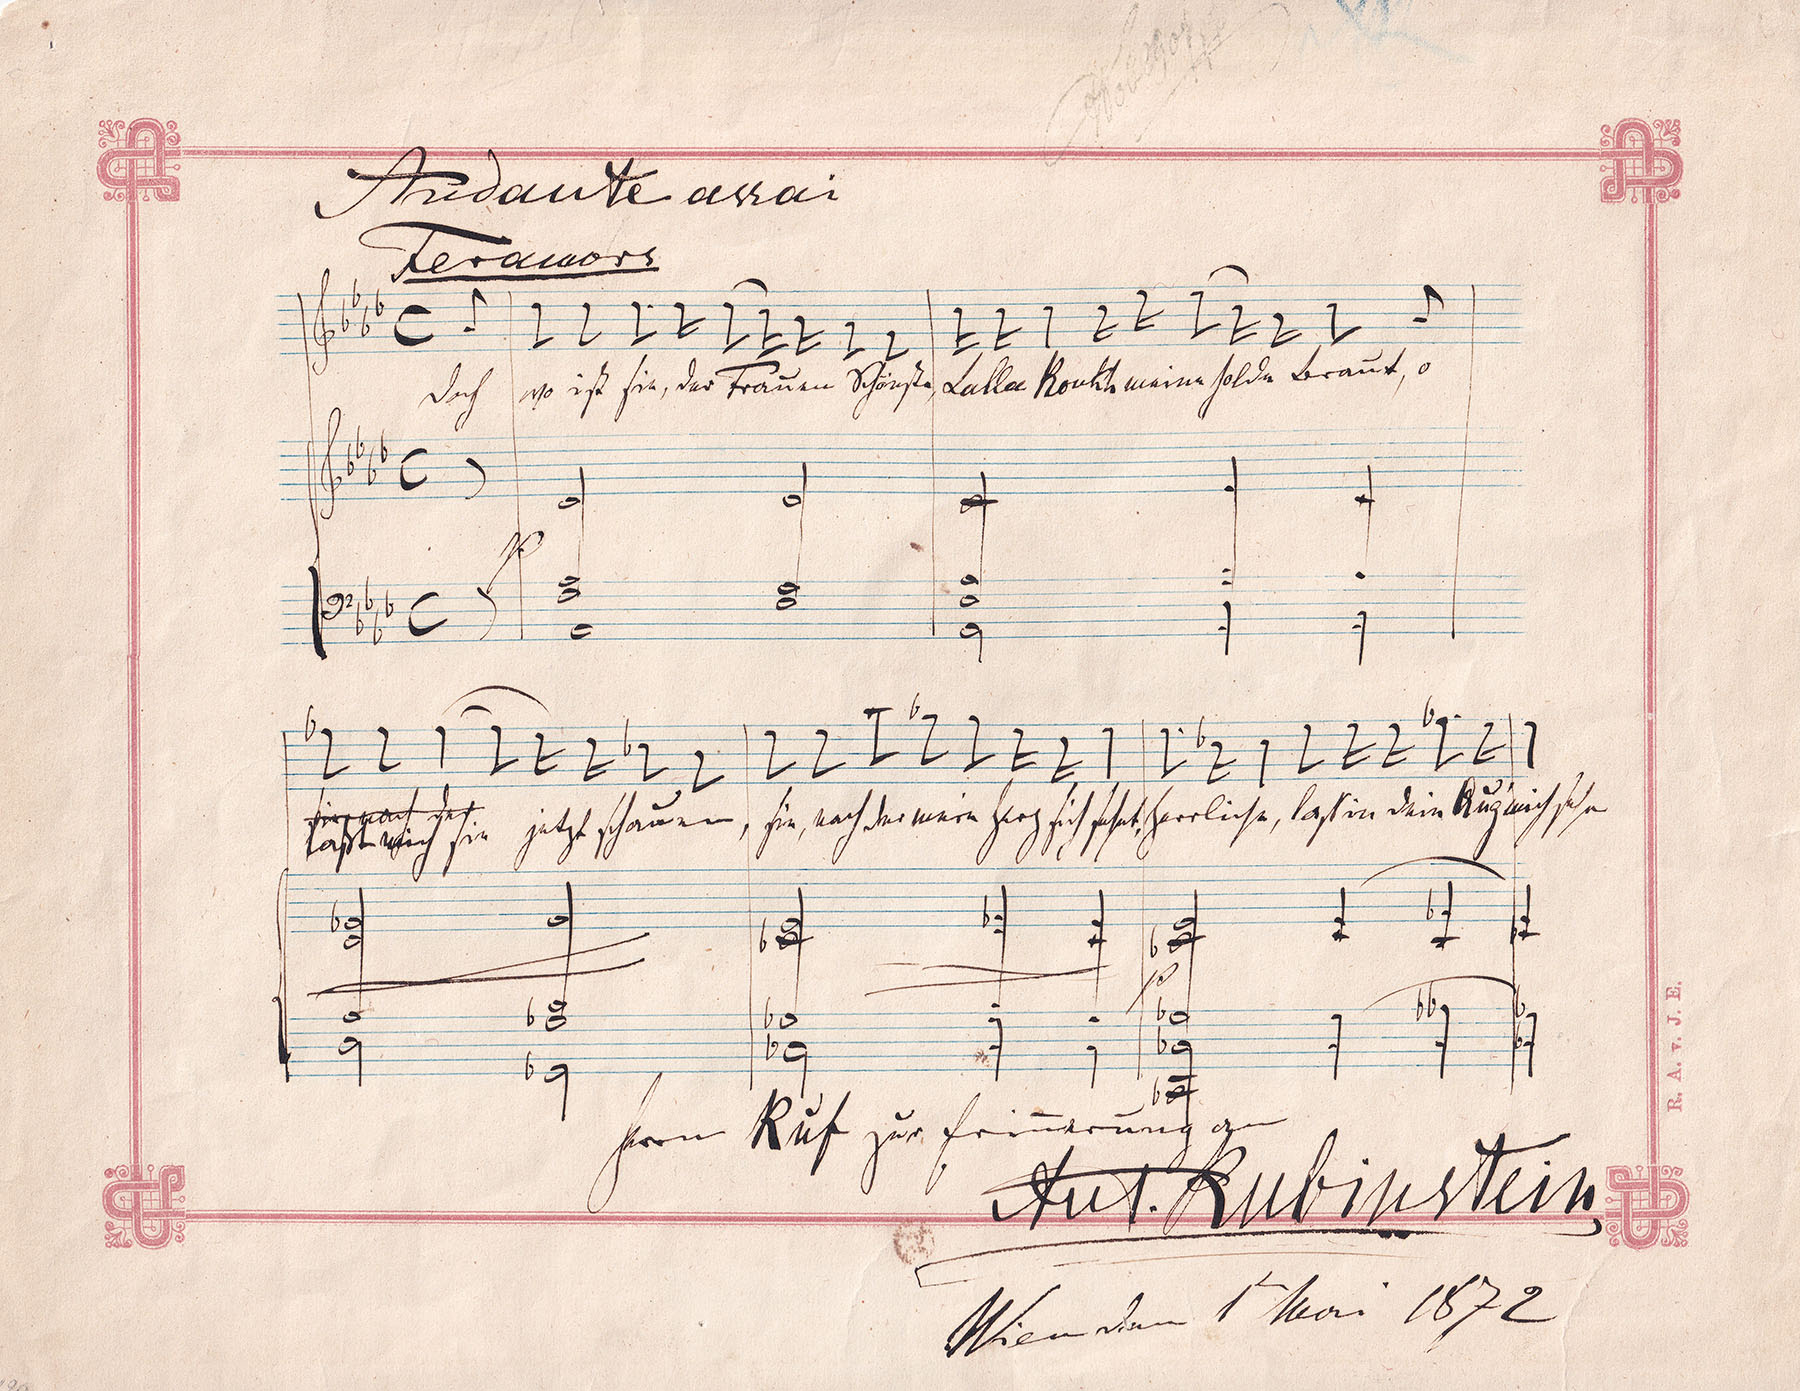 Andante assai
Feramors
Doch wo ist sie, der Frauen Schönste, Lalla Roukh meine holde Braut, o
sie, nach der
laßt mich sie jetzt schauen, sie, nach der mein Herz sich sehnt, Herrliche, lass in dein Aug' mich sehn
p
p
Herrn Ruf zur Erinnerung an
Ant. Rubinstein
Wien den 1 Mai 1872
R. A. v. J. E.